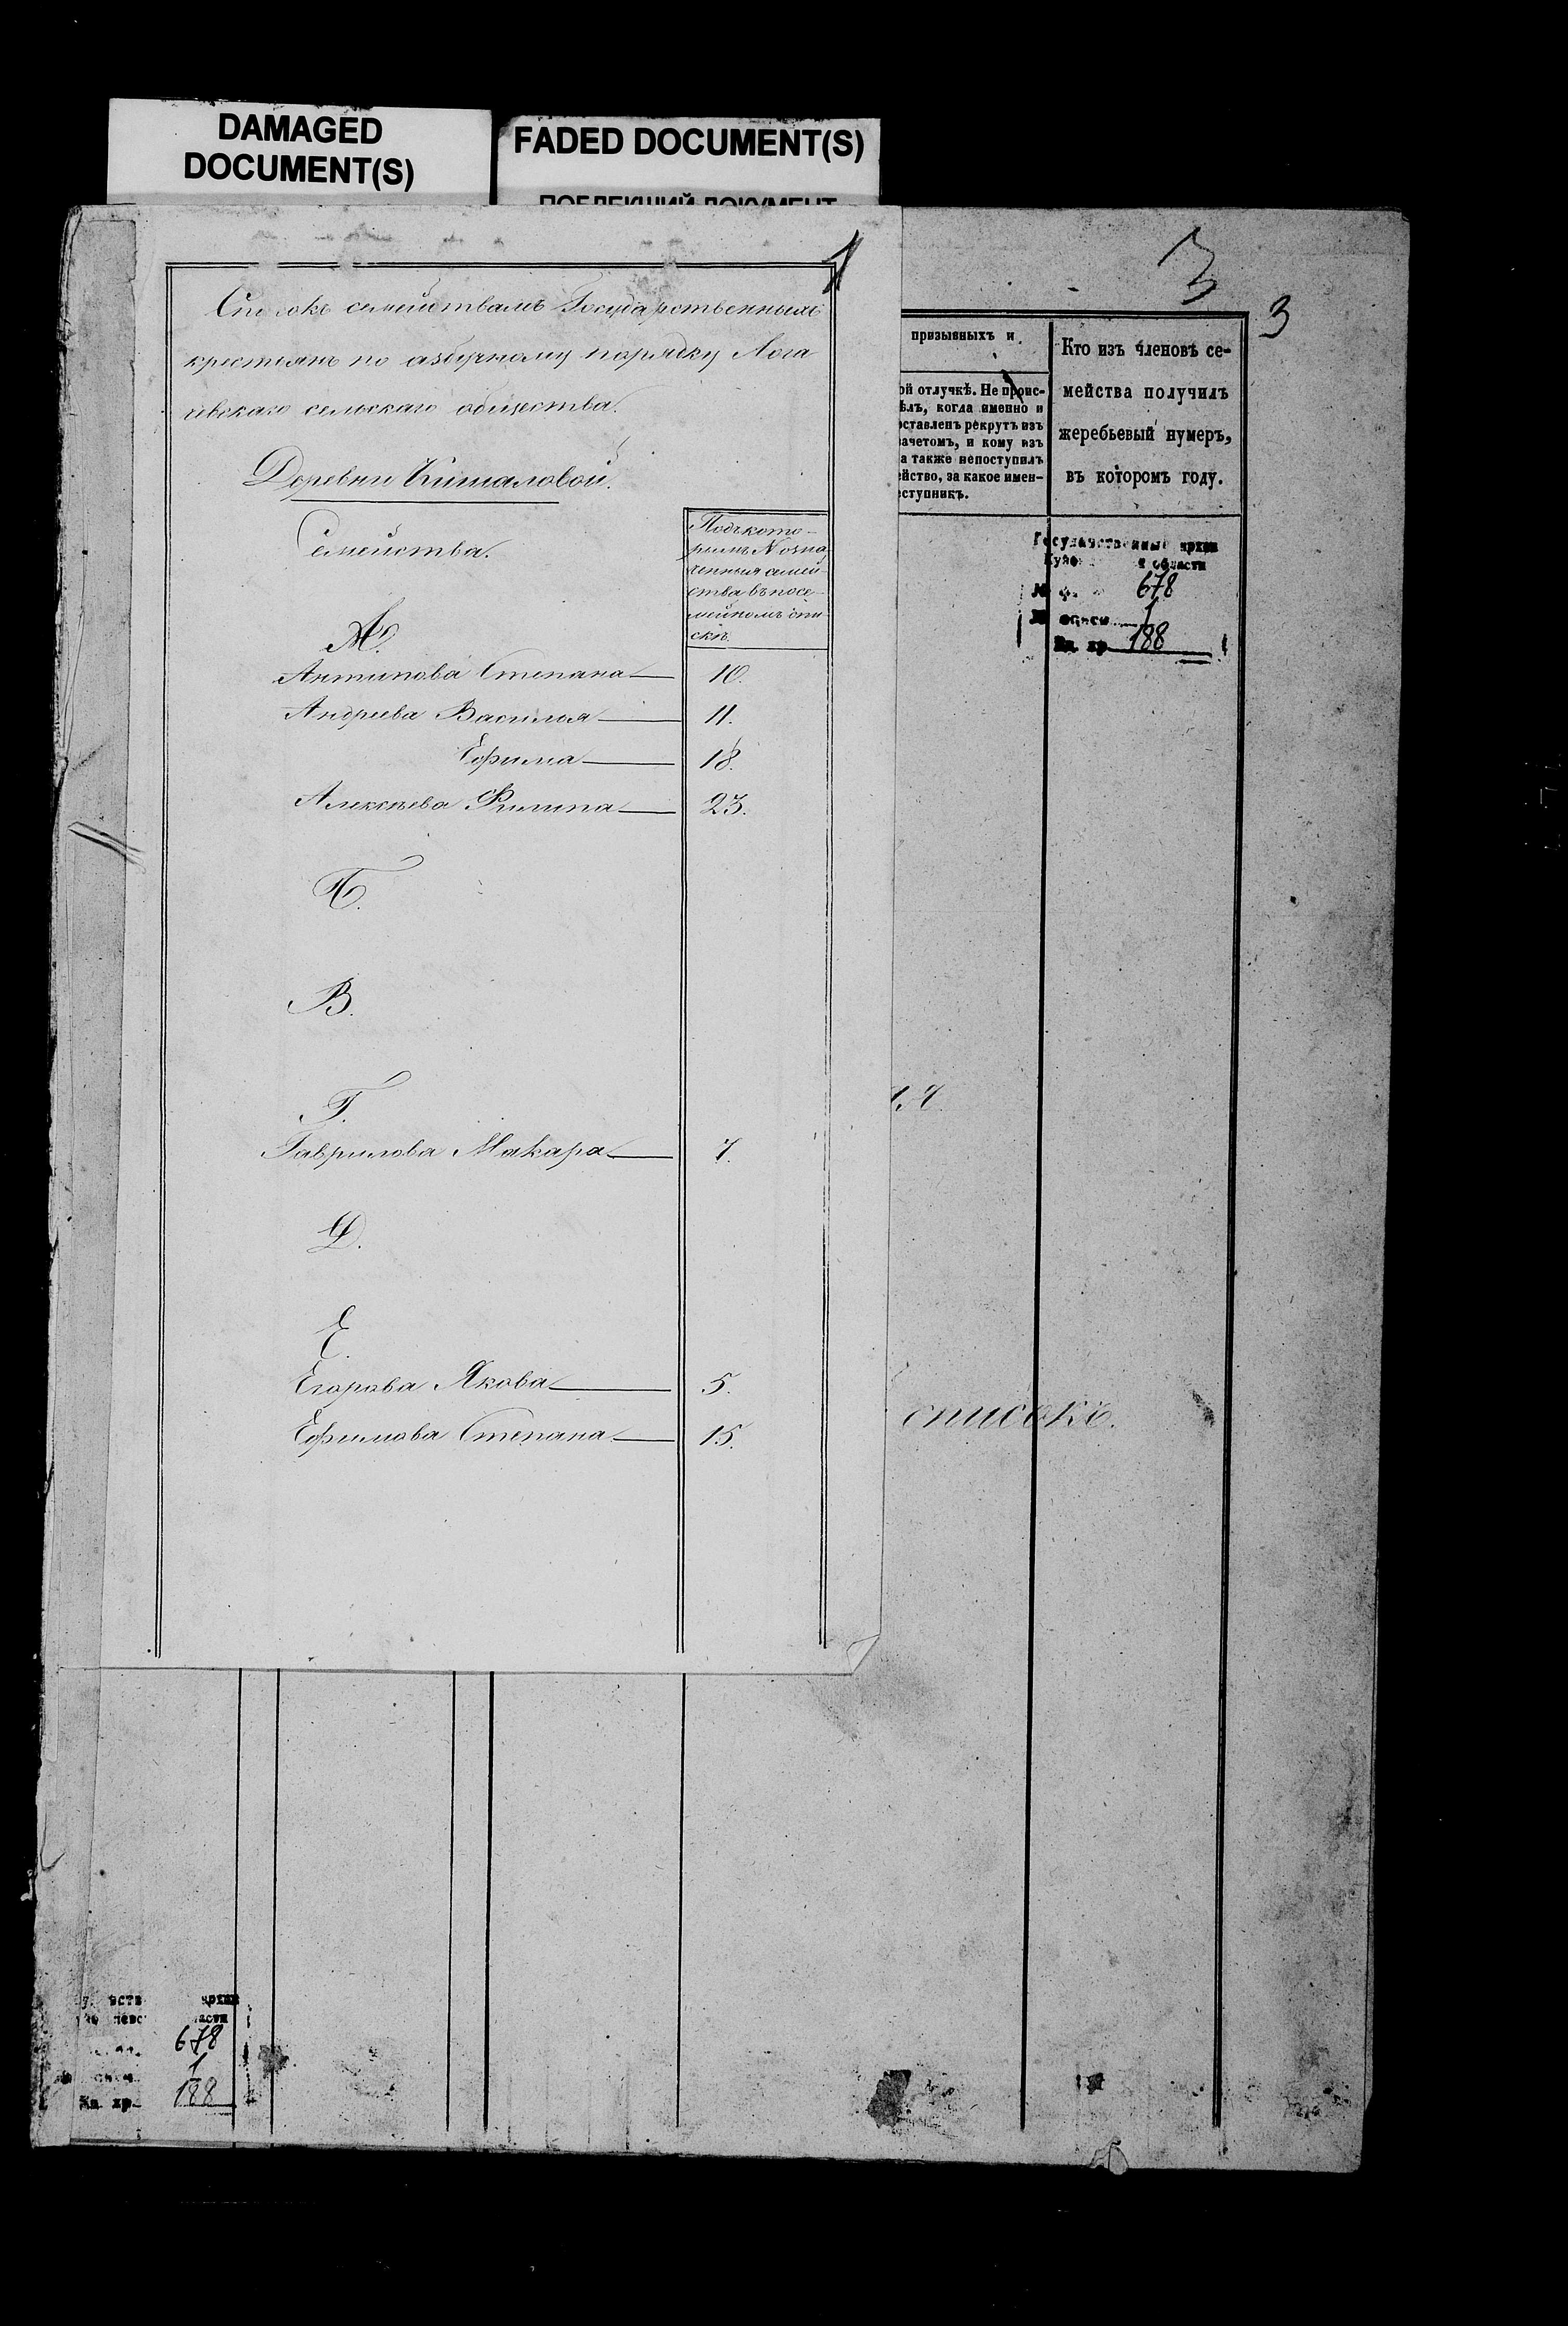 DAMAGED
DOCUMENT(S)
FADED DOCUMENT(S)
ПОБЛЕКШИЙ ДОКУМЕНТ
1
Списокъ семействамъ Государственныхъ
крестьянъ по азбучному порядку Лога
сельскаго общества.
Деревни
Семейства.
Подъ кото-
рымъ N озна
ченныя семей-
ства въ посе-
мейномъ спи
скѣ.
А.
Антипова Степана 10.
Андреева Василья 11.
Ефима 18.
Алексѣева Филипа 23.
Б.
В.
Г.
Гаврилова Макара 7.
Д.
Е.
Егорова Якова 5.
Ефимова Степана 15.
3
3
призывныхъ и
ой отлучкѣ. Не проис-
ѣлъ, когда именно и
оставленъ рекрутъ изъ
зачетомъ, и кому изъ
а также непоступилъ
ейство, за какое имен-
еступникъ.
Кто изъ членовъ се-
мейства получилъ
жеребьевый нумеръ,
въ которомъ году.
области
678
1
188
списокъ.
678
1
188